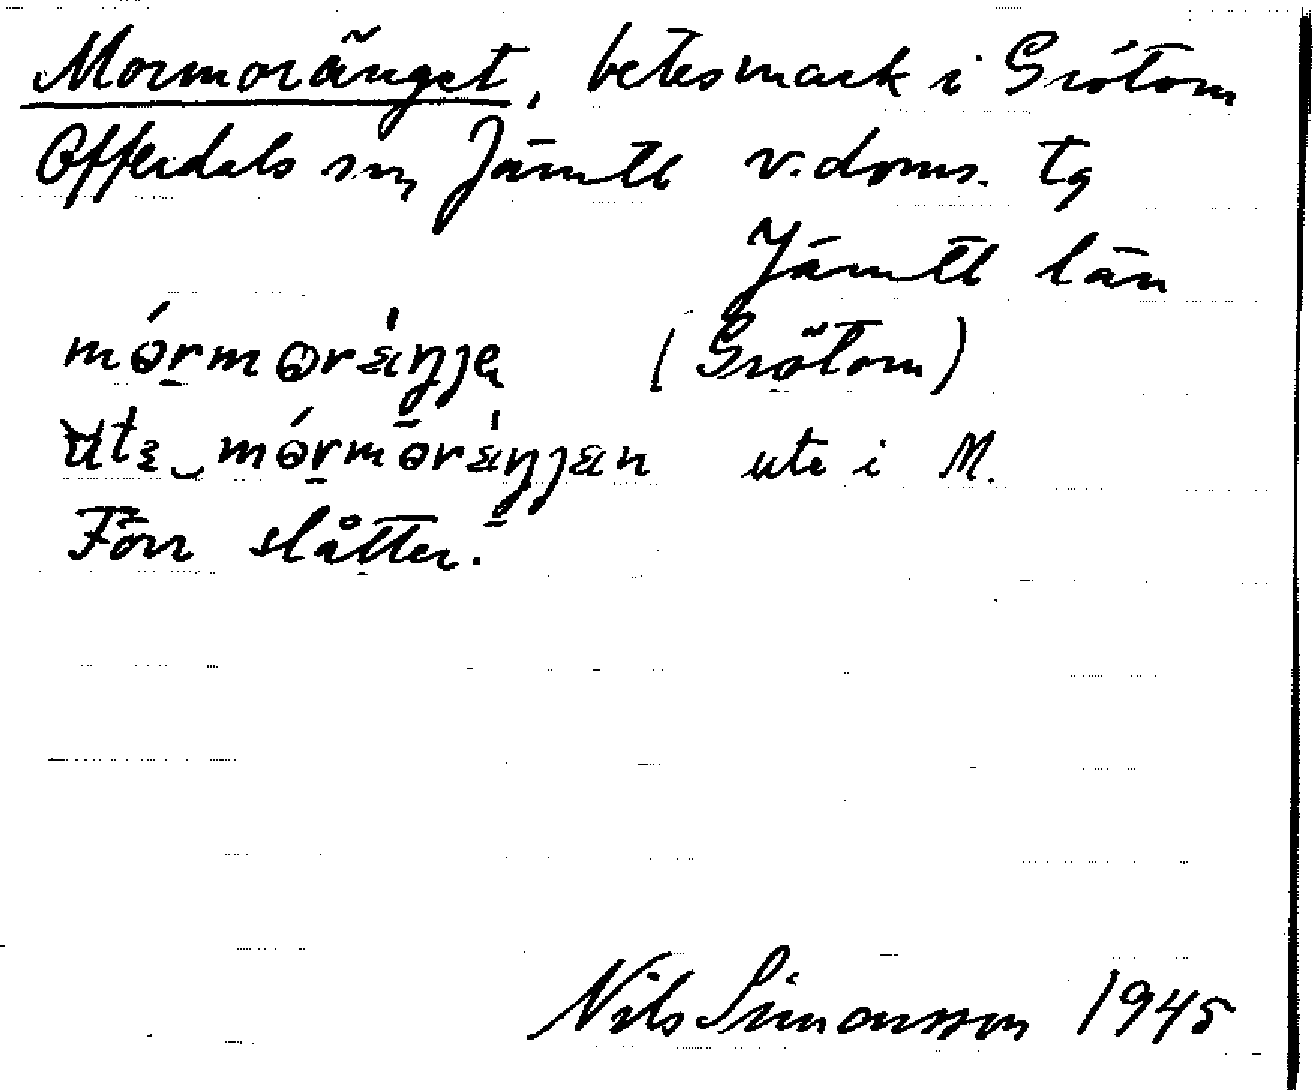 Mormoränget, betesmark i Grötom
Offerdals sn, Jämtl v.doms. tg
Jämtl län
mórmɷrä̀ŋje (Grötom)
ute mórmɷrä̀ŋjen ute i M.
Förr slåtter.
Nils Simonsson 1945